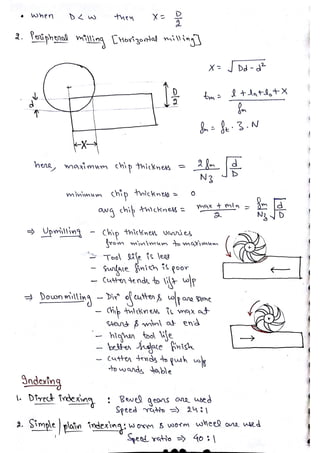 • when D<w then X = D/2
2. Peripheral milling [Horizontal milling]
X = √Dd-d²
D/2
d
tm = l + la + lo + X / fm
X
fm = ft . 3 . N
here, maximum chip thickness = 2fm / N3 √d/D
minimum chip thickness = 0
avg chip thickness = max + min / 2 = fm / N3 √d/D
⇒ Upmilling - Chip thickness varries
from minimum to maximum
- Tool life is less
- surface finish is poor
- cutter tends to lift w/p
⇒ Down milling - Dirⁿ of cutter & w/p are same
- chip thickness is max at
start & mini at end
- higher tool life
- better surface finish
- cutter tends to push w/p
towards table
Indexing
1. Direct indexing : Bevel gears are used
Speed ratio ⇒ 24:1
2. Simple/plain indexing: worm & worm wheel are used
Speed ratio ⇒ 40:1